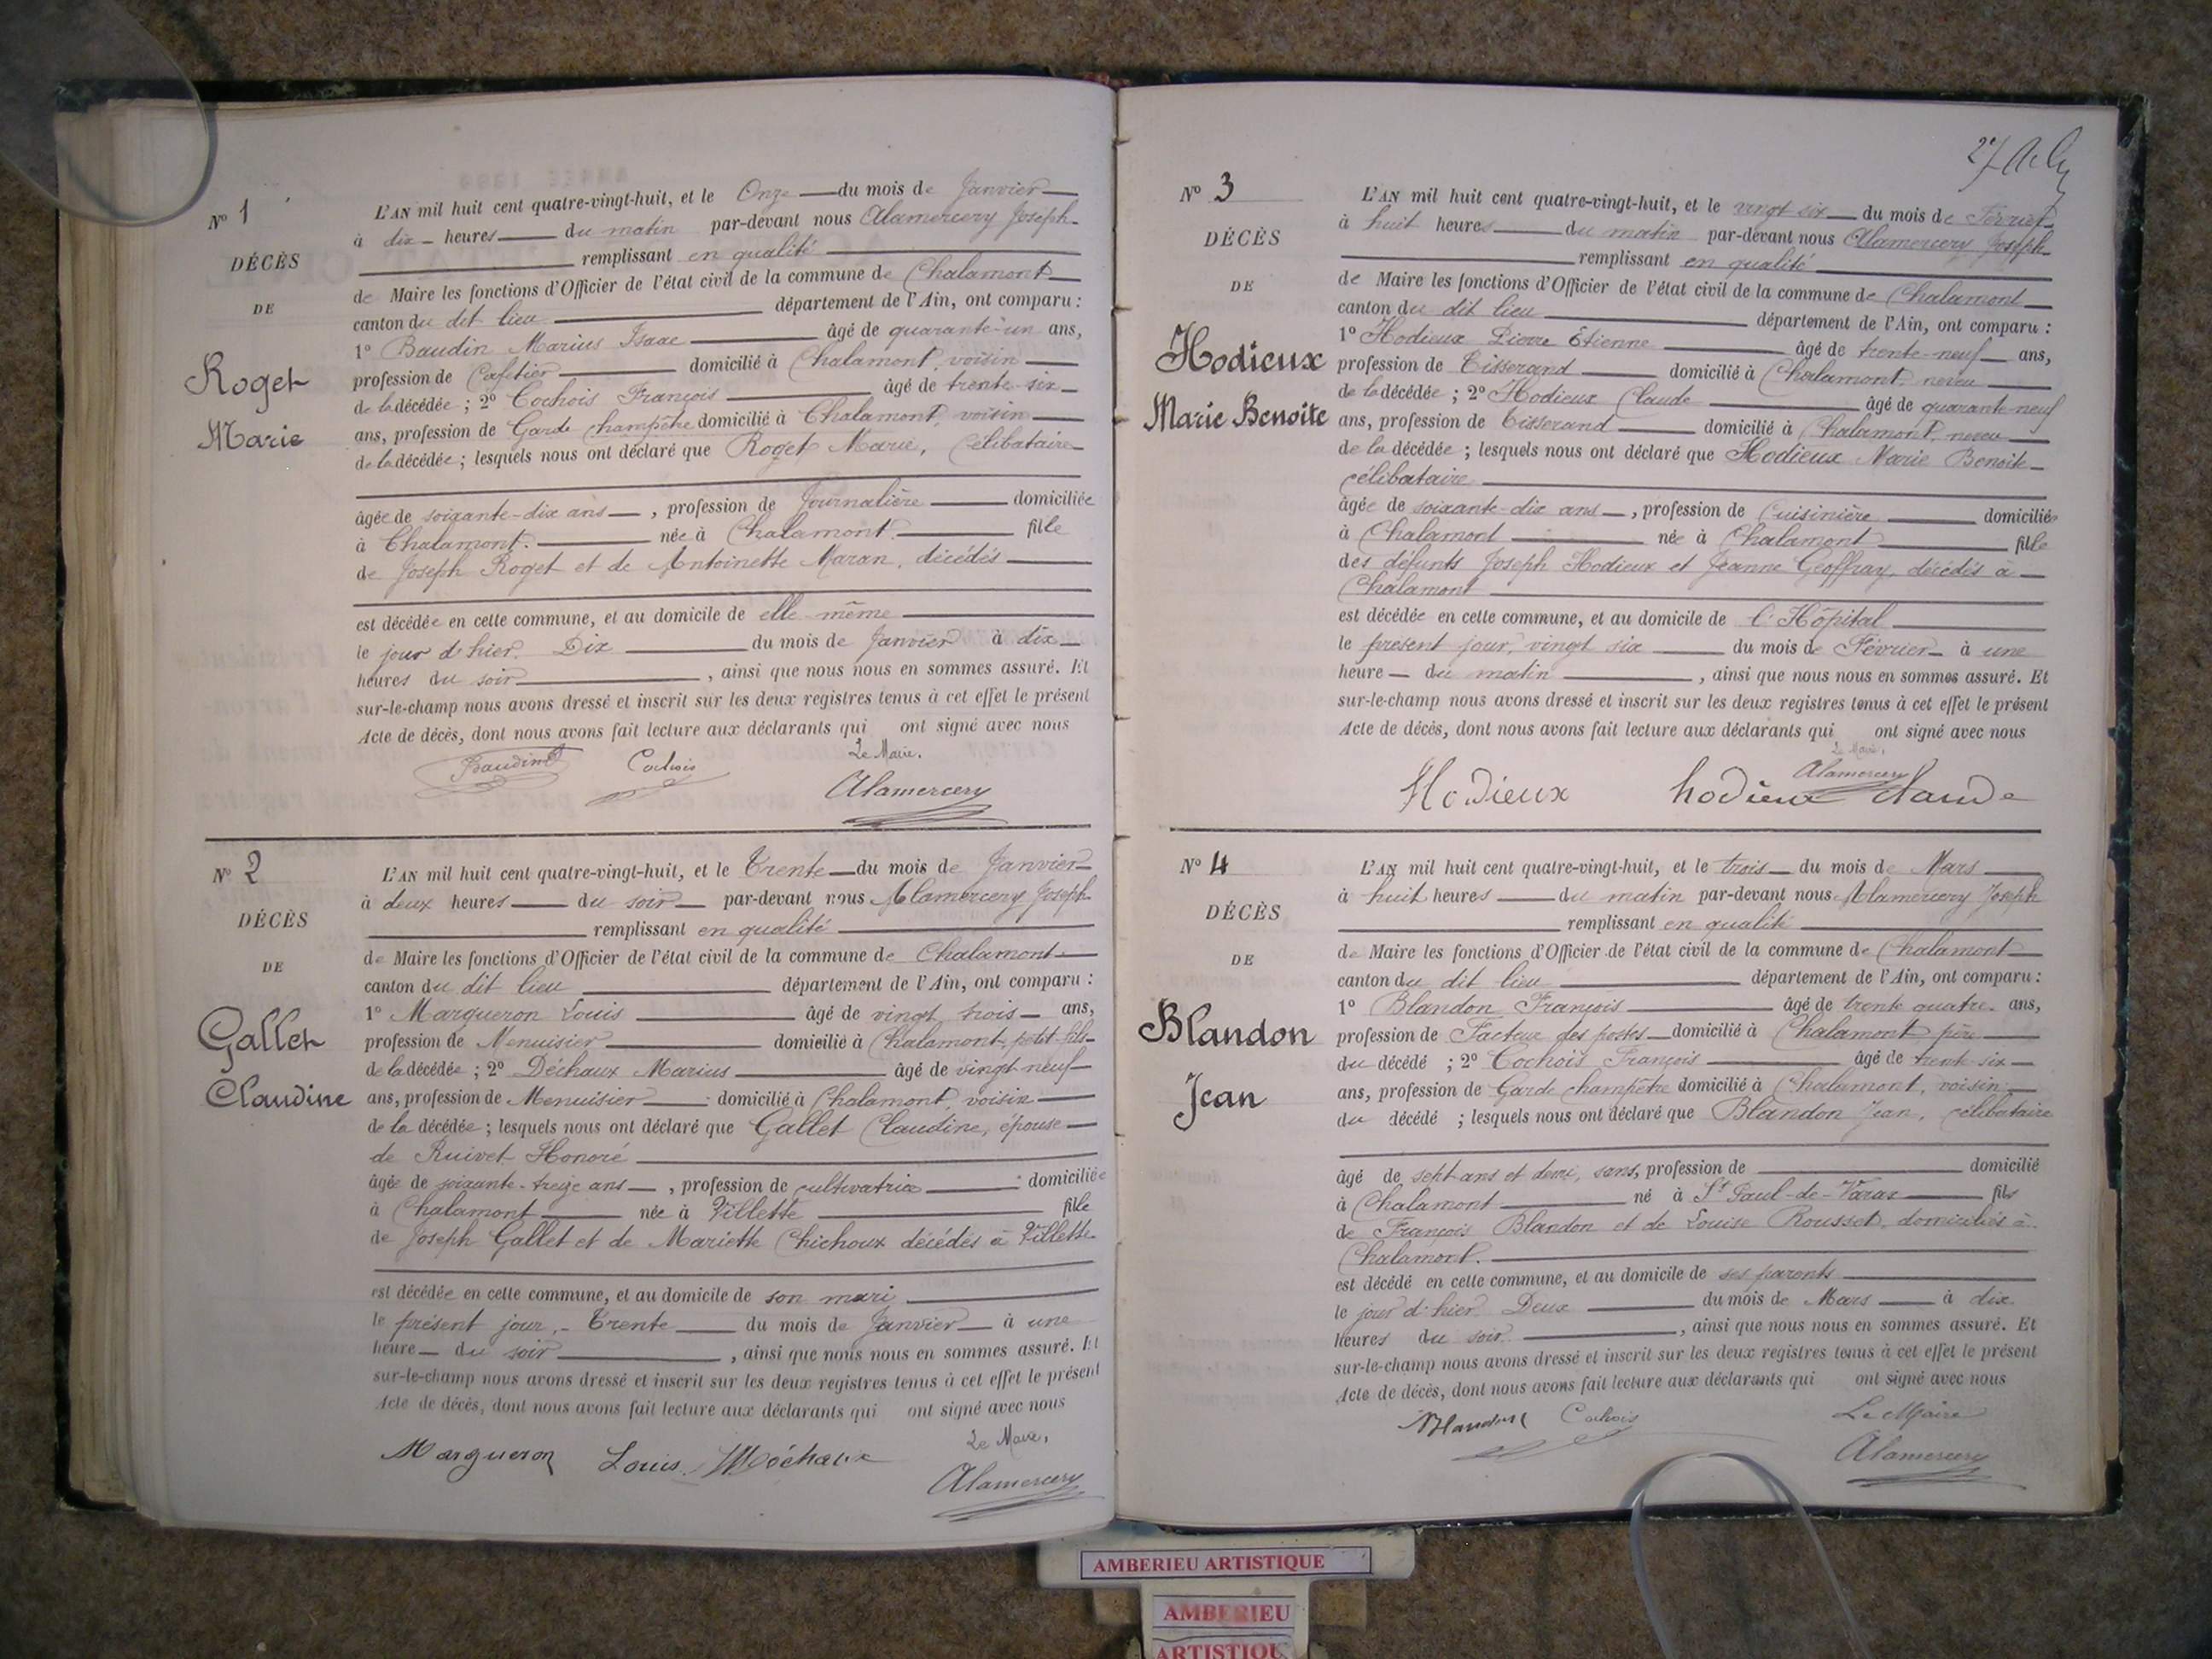 Nº 1
DÉCÈS
DE
Roget
Marie
L'AN mil huit cent quatre-vingt-huit, et le Onze du mois de Janvier
à dix heures du matin par-devant nous Alamercery Joseph
remplissant en qualité
de Maire les fonctions d'Officier de l'état civil de la commune de Chalamont
canton du dit lieu département de l'Ain, ont comparu :
1º Baudin Marius Isaac âgé de quarante-un ans,
profession de Cafetier domicilié à Chalamont, voisin
de la décédée ; 2º Cochois François âgé de trente-six
ans, profession de Garde champêtre domicilié à Chalamont, voisin
de la décédée ; lesquels nous ont déclaré que Roget Marie, Célibataire
âgée de soixante-dix ans, profession de Journalière domiciliée
à Chalamont. née à Chalamont. fille
de Joseph Roget et de Antoinette Maran, décédés
est décédée en cette commune, et au domicile de elle même
le jour d'hier. Dix du mois de Janvier à dix
heures du soir, ainsi que nous nous en sommes assuré. Et
sur-le-champ nous avons dressé et inscrit sur les deux registres tenus à cet effet le présent
Acte de décès, dont nous avons fait lecture aux déclarants qui ont signé avec nous
Le Maire.
Baudin Cochois Alamercery
Nº 2
DÉCÈS
DE
Gallet
Claudine
L'AN mil huit cent quatre-vingt-huit, et le Trente du mois de Janvier
à deux heures du soir par-devant nous Alamercery Joseph
remplissant en qualité
de Maire les fonctions d'Officier de l'état civil de la commune de Chalamont
canton du dit lieu département de l'Ain, ont comparu :
1º Margueron Louis âgé de vingt trois ans,
profession de Menuisier domicilié à Chalamont, petit-fils
de la décédée ; 2º Déchaux Marius âgé de vingt neuf
ans, profession de Menuisier domicilié à Chalamont, voisin
de la décédée ; lesquels nous ont déclaré que Gallet Claudine, épouse
de Ruivet Honoré
âgée de soixante-treize ans, profession de cultivatrice domiciliée
à Chalamont née à Villette fille
de Joseph Gallet et de Mariette Chichoux décédés à Villette
est décédée en cette commune, et au domicile de son mari
le présent jour, Trente du mois de Janvier à une
heure du soir, ainsi que nous nous en sommes assuré. Et
sur-le-champ nous avons dressé et inscrit sur les deux registres tenus à cet effet le présent
Acte de décès, dont nous avons fait lecture aux déclarants qui ont signé avec nous
Le Maire,
Margueron Louis Déchaux Alamercery
27
Nº 3
DÉCÈS
DE
Hodieux
Marie Benoite
L'AN mil huit cent quatre-vingt-huit, et le vingt six du mois de Février
à huit heures du matin par-devant nous Alamercery Joseph
remplissant en qualité
de Maire les fonctions d'Officier de l'état civil de la commune de Chalamont
canton du dit lieu département de l'Ain, ont comparu :
1º Hodieux Pierre Etienne âgé de trente-neuf ans,
profession de Tisserand domicilié à Chalamont, neveu
de la décédée ; 2º Hodieux Claude âgé de quarante-neuf
ans, profession de Tisserand domicilié à Chalamont, neveu
de la décédée ; lesquels nous ont déclaré que Hodieux Marie Benoite
célibataire
âgée de soixante-dix ans, profession de Cuisinière domiciliée
à Chalamont née à Chalamont fille
des défunts Joseph Hodieux et Jeanne Geoffray, décédés à
Chalamont
est décédée en cette commune, et au domicile de l'Hôpital
le présent jour, vingt six du mois de Février à une
heure du matin, ainsi que nous nous en sommes assuré. Et
sur-le-champ nous avons dressé et inscrit sur les deux registres tenus à cet effet le présent
Acte de décès, dont nous avons fait lecture aux déclarants qui ont signé avec nous
Le Maire,
Alamercery
Hodieux hodieux claude
Nº 4
DÉCÈS
DE
Blandon
Jean
L'AN mil huit cent quatre-vingt-huit, et le trois du mois de Mars
à huit heures du matin par-devant nous Alamercery Joseph
remplissant en qualité
de Maire les fonctions d'Officier de l'état civil de la commune de Chalamont
canton du dit lieu département de l'Ain, ont comparu :
1º Blandon François âgé de trente quatre ans,
profession de Facteur des postes domicilié à Chalamont père
du décédé ; 2º Cochois François âgé de trente-six
ans, profession de Garde champêtre domicilié à Chalamont, voisin
du décédé ; lesquels nous ont déclaré que Blandon Jean, célibataire
âgé de sept ans et demi, sans, profession de domicilié
à Chalamont né à St Paul-de-Varax fils
de François Blandon et de Louise Rousset, domiciliés à
Chalamont.
est décédé en cette commune, et au domicile de ses parents
le jour d'hier Deux du mois de Mars à dix
heures du soir, ainsi que nous nous en sommes assuré. Et
sur-le-champ nous avons dressé et inscrit sur les deux registres tenus à cet effet le présent
Acte de décès, dont nous avons fait lecture aux déclarants qui ont signé avec nous
Blandon Cochois Le Maire
Alamercery
AMBERIEU ARTISTIQUE
AMBERIEU
ARTISTIQU